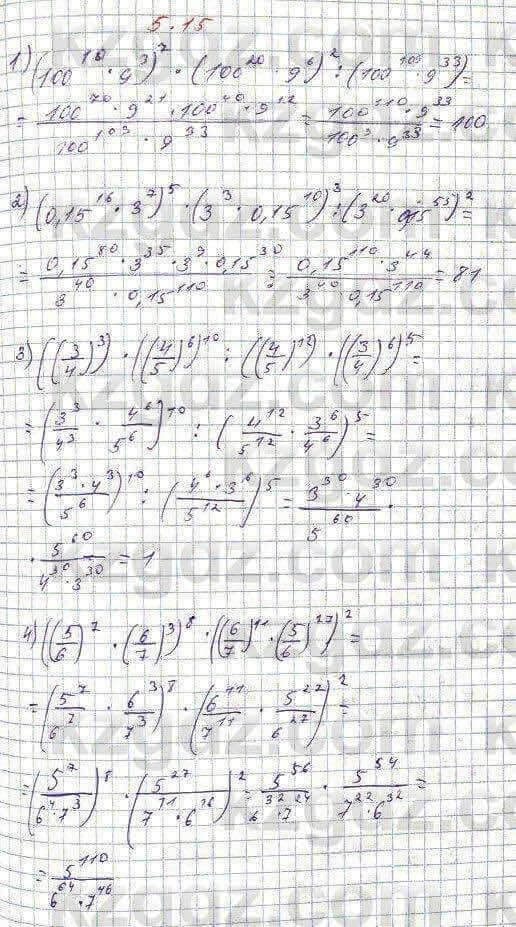 5.15
1) (100^10 · 9^3)^7 · (100^20 · 9^6)^2 : (100^109 · 9^33) =
= (100^70 · 9^21 · 100^40 · 9^12)/(100^109 · 9^33) = (100^110 · 9^33)/(100^9 · 9^33) = 100
2) (0,15^16 · 3^7)^5 · (3^3 · 0,15^10)^3 : (3^20 · 0,15^55)^2 =
= (0,15^80 · 3^35 · 3^9 · 0,15^30)/(3^40 · 0,15^110) = (0,15^110 · 3^44)/(3^40 · 0,15^110) = 81
3) ((3/4)^3) · ((4/5)^6)^10 : ((4/5)^12) · ((3/4)^6)^5 =
= (3^3/4^3 · 4^6/5^6)^10 : (4^12/5^12 · 3^6/4^6)^5 =
= ((3^3 · 4^3)/5^6)^10 : ((4^6 · 3^6)/5^12)^5 = (3^30 · 4^30)/5^60 ·
· 5^60/(4^30 · 3^30) = 1
4) ((5/6)^7 · (6/7)^3)^8 · ((6/7)^11 · (5/6)^27)^2 =
= (5^7/6^7 · 6^3/7^3)^8 · (6^11/7^11 · 5^27/6^27)^2 =
= (5^7/(6^4 · 7^3))^8 · (5^27/(7^11 · 6^16))^2 = 5^56/(6^32 · 7^24) · 5^54/(7^22 · 6^32) =
= 5^110/(6^64 · 7^46)
kzgdz.com